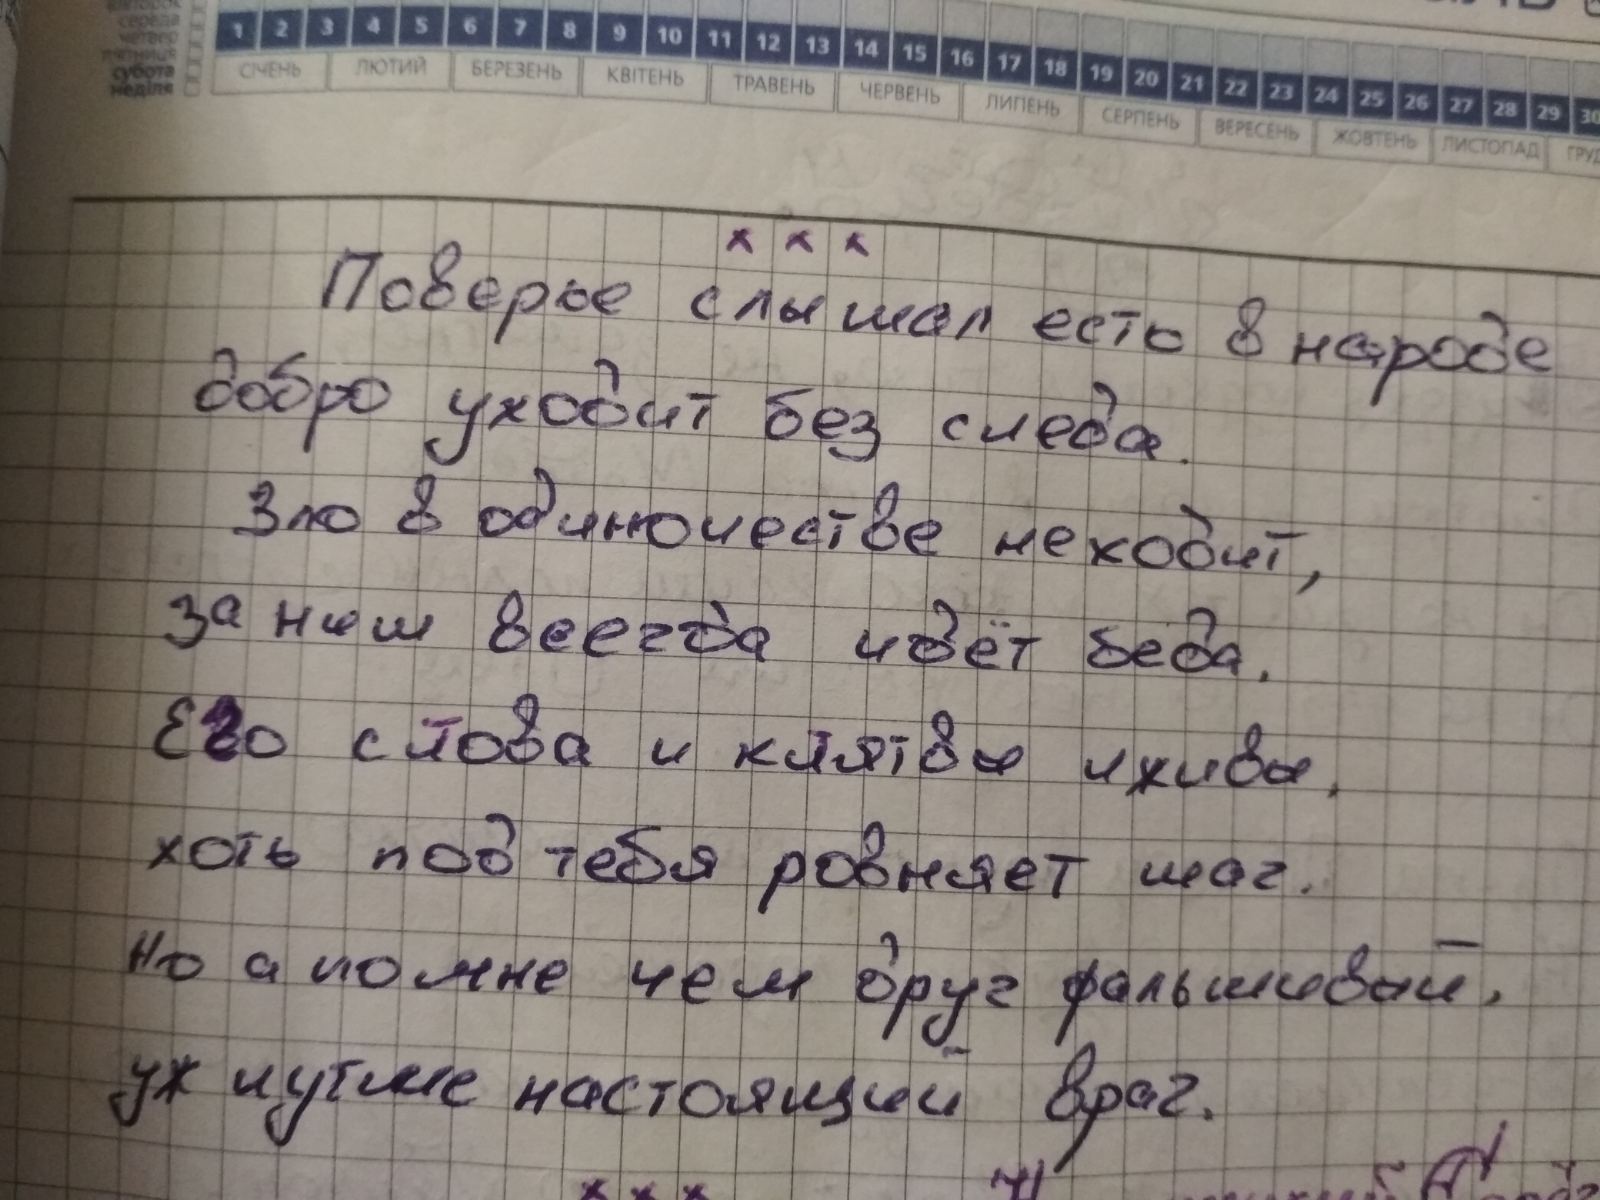 середа
четвер
п'ятниця
субота
неділя
1 2 3 4 5 6 7 8 9 10 11 12 13 14 15 16 17 18 19 20 21 22 23 24 25 26 27 28 29 30
СІЧЕНЬ ЛЮТИЙ БЕРЕЗЕНЬ КВІТЕНЬ ТРАВЕНЬ ЧЕРВЕНЬ ЛИПЕНЬ СЕРПЕНЬ ВЕРЕСЕНЬ ЖОВТЕНЬ ЛИСТОПАД ГРУД
х х х
Поверье слышал есть в народе
добро уходит без следа.
Зло в одиночестве не ходит,
за ним всегда идёт беда.
Его слова и клятвы лживы,
хоть под тебя ровняет шаг.
Но а по мне чем друг фальшивый,
уж лутше настоящий враг.
х х х